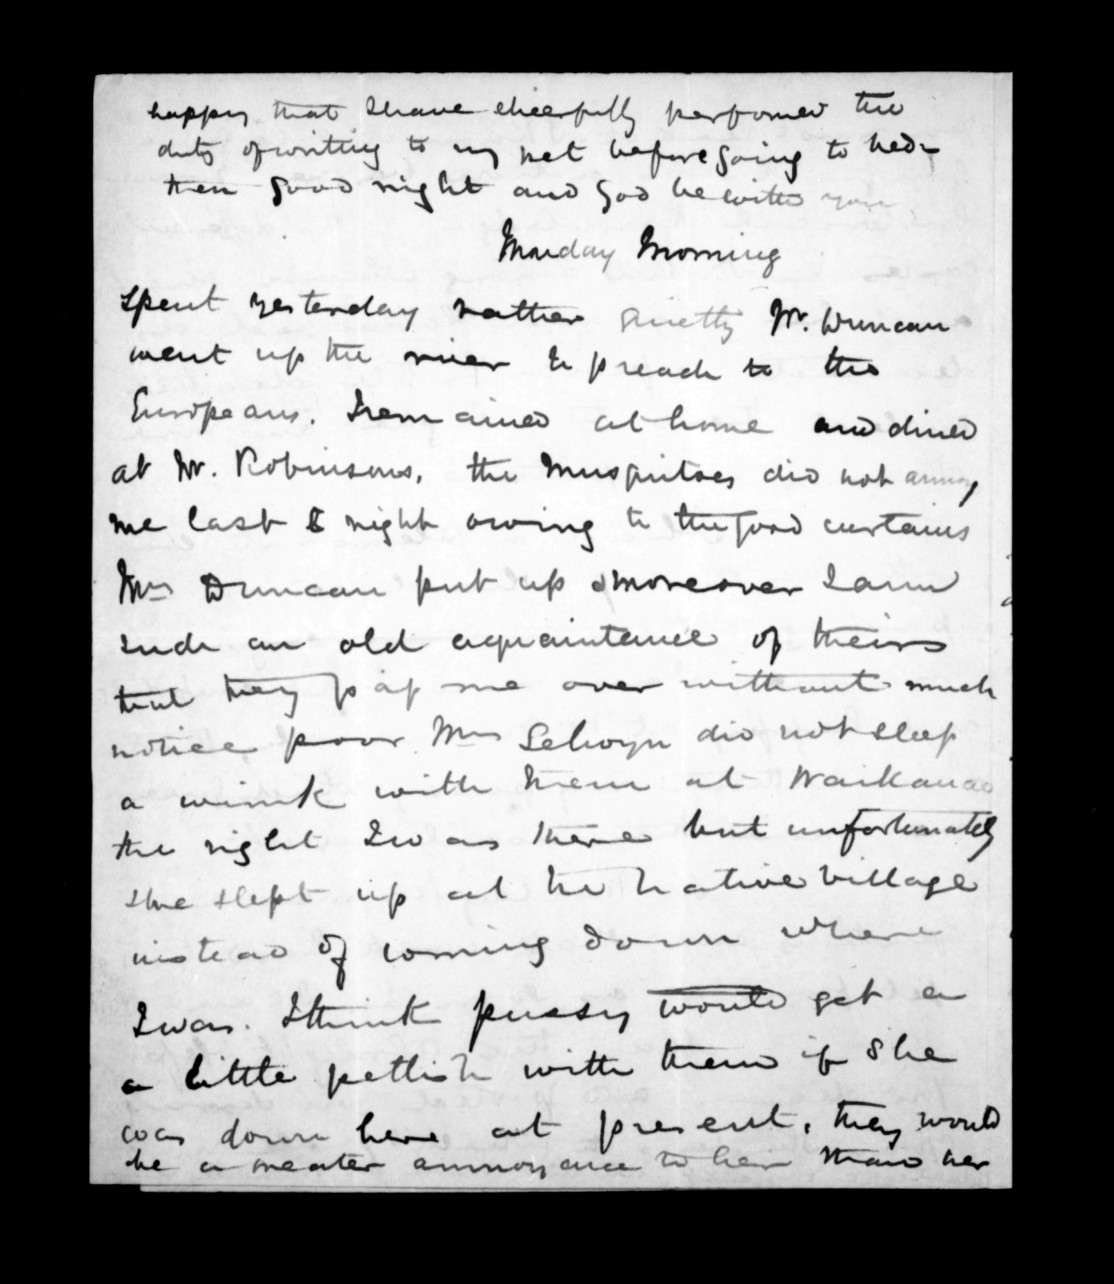 happy that I have cheerfully performed the
duty of writing to my pet before going to bed -
then good night and God be with you
Monday Morning
Spent yesterday rather quietly Mr. Duncan
went up the river to preach to the
Europeans. I remained at home and dined
at Mr. Robinsons. the Musquitoes did not annoy
me last night owing to the good curtains
Mrs Duncan put up & moreover I am
such an old aquaintance of theirs
that they pass me over without much
notice poor Mrs Selwyn did not sleep
a wink with them at Waikanae
the night I was there but unfortunately
she slept up at the native village
instead of coming down where
I was. I think pussy would get a
a little pettish with them if she
was down here at present, they would
be a greater annoyance to her than her